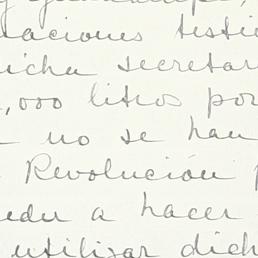 aciones
dicha secretar
,000 litros por
no se han
Revolución
eder a hacer
utilizar dich